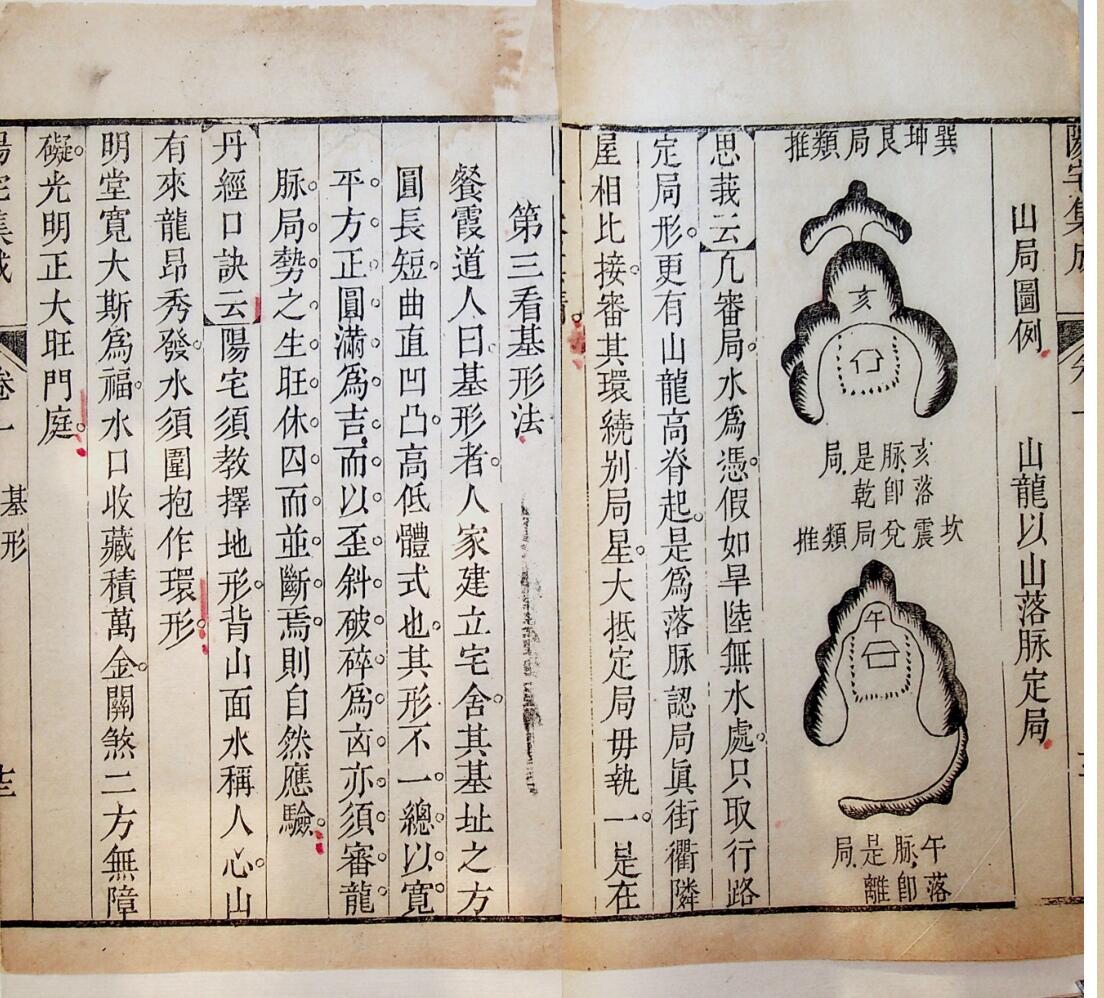 山局圖例　山龍以山落脉定局
巽坤艮局類推
亥
亥落脉即是乾局
坎震兌局類推
午
午落脉即是離局
思莪云凢審局。水為憑。假如旱陸無水處。只取行路
定局形。更有山龍高脊起。是為落脉認局眞街衢隣
屋相比接。審其環繞别局星。大抵定局毋執一。是在
第三看基形法
餐霞道人曰。基形者。人家建立宅舍。其基址之方
圓長短。曲直凹凸。高低體式也。其形不一。總。以。寛。
平。方。正。圓。滿。爲。吉。而。以。歪。斜。破。碎。爲。凶。亦。須。審。龍。
脉。局。勢。之。生。旺。休。囚。而。並。斷。焉。則自然應驗。
丹經口訣云陽宅須教擇地形。背山面水稱人心。山
有來龍昂秀發。水須圍抱作環形。
明堂寛大斯爲福。水口收藏積萬金。關煞二方無障
礙。光明正大旺門庭。
陽宅集成　卷一　基形